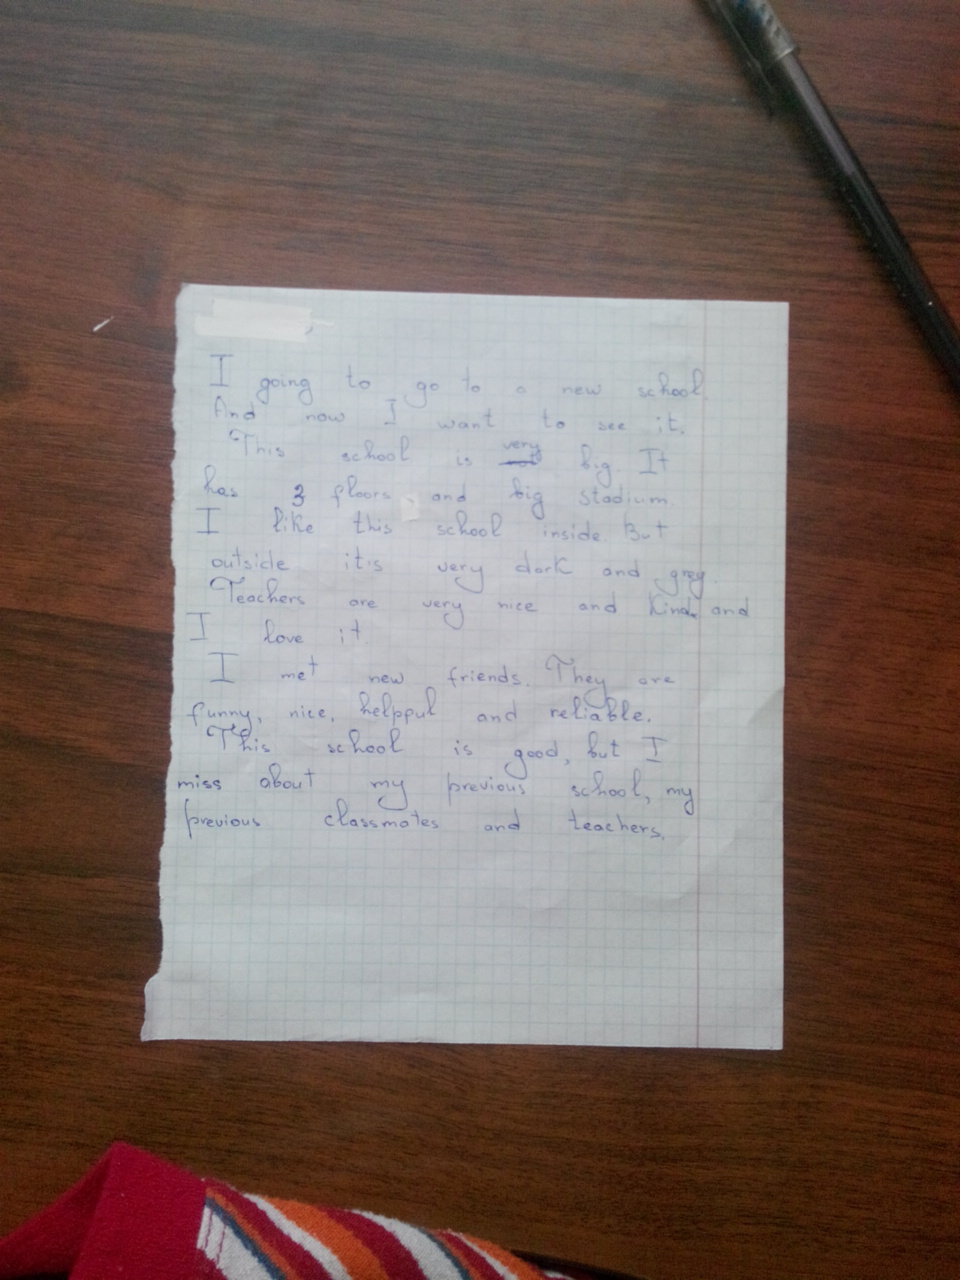 I going to go to a new school
And now I want to see it.
This school is very big. It
has 3 floors and big stadium.
I like this school inside. But
outside it's very dark and grey.
Teachers are very nice and kind and
I love it.
I met new friends. They are
funny, nice, helpful and reliable.
This school is good, but I
miss about my previous school, my
previous classmates and teachers.